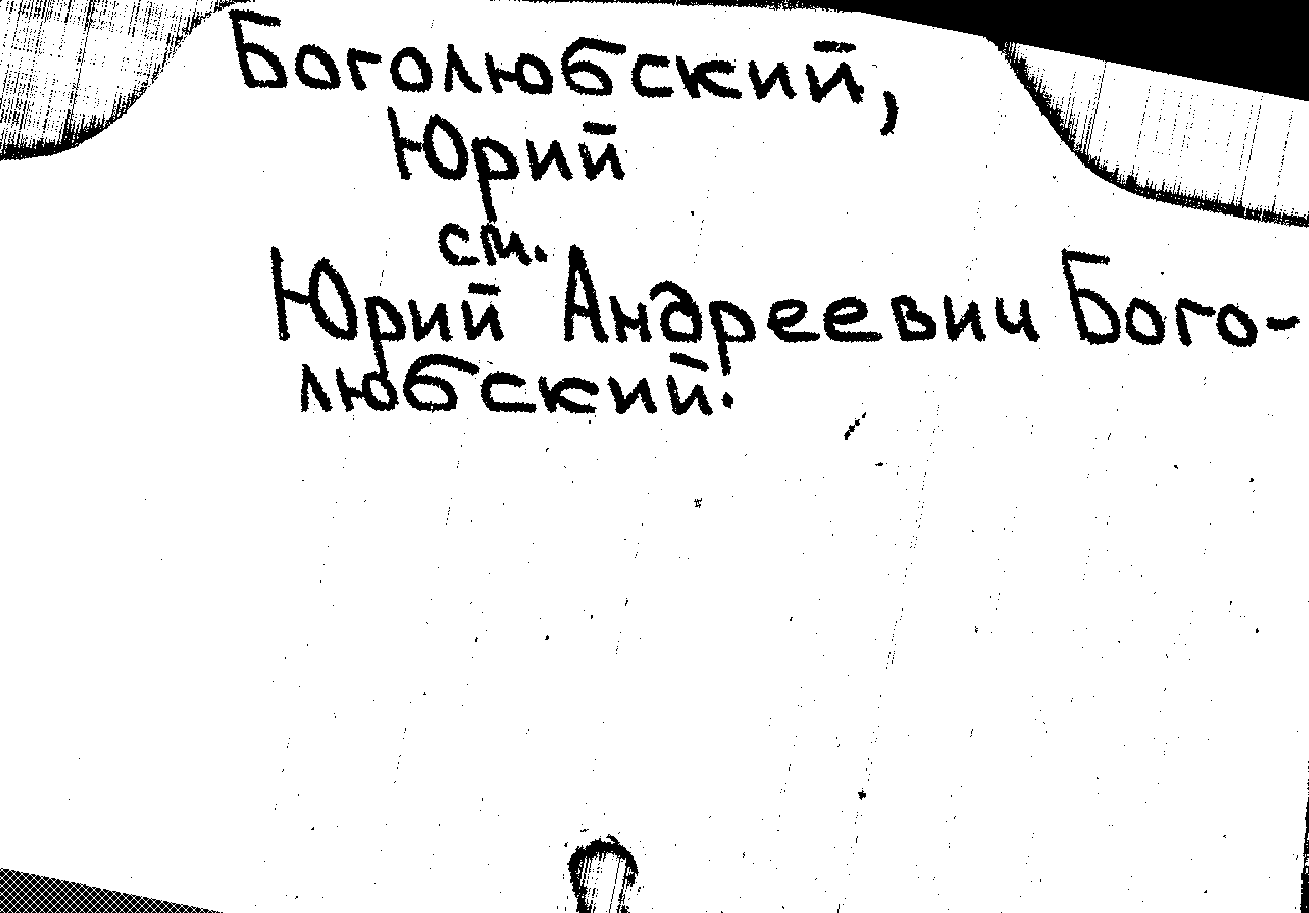 Боголюбский,
Юрий
см.
Юрий Андреевич Бого-
любский.